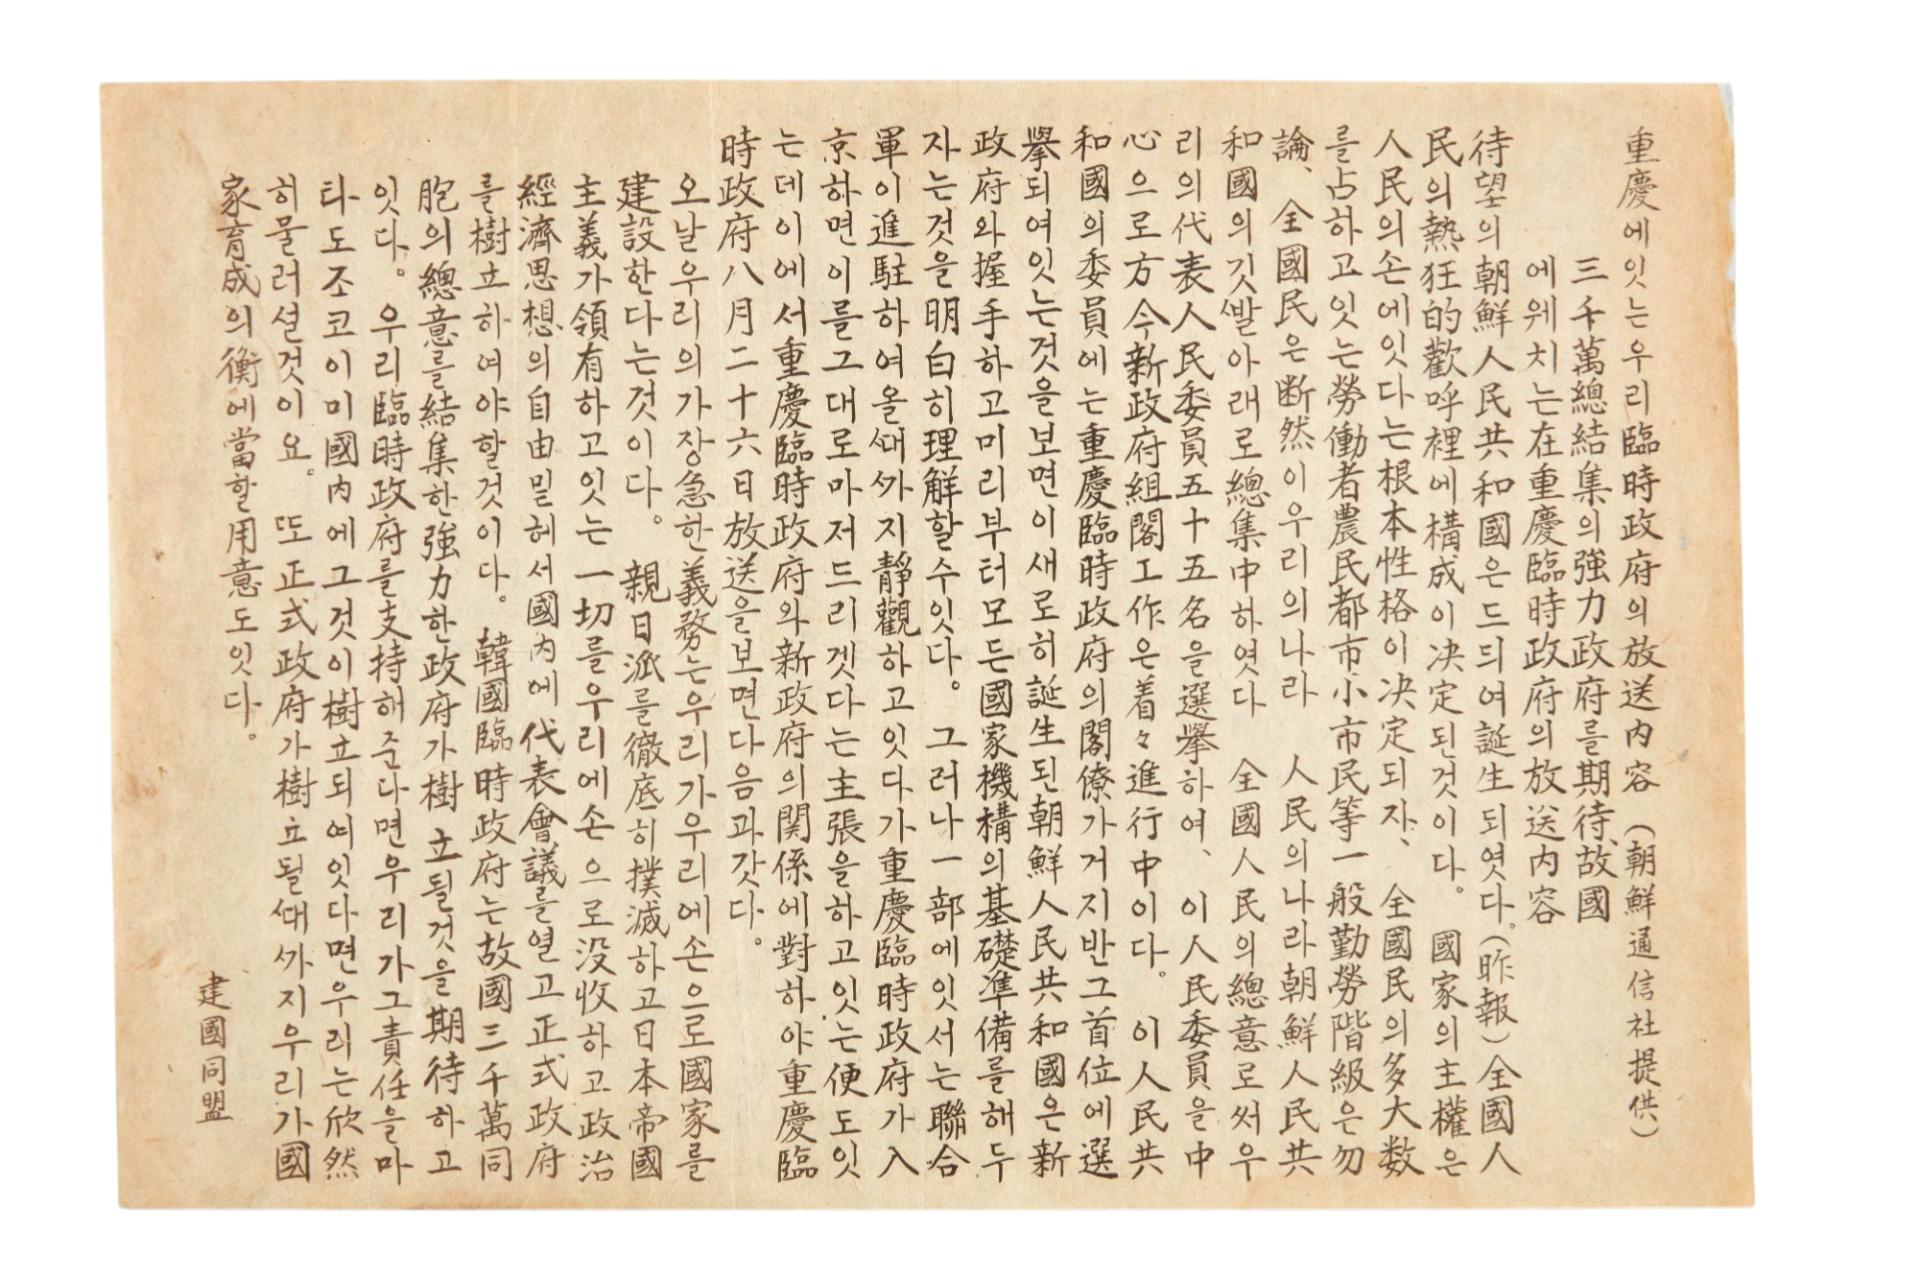 重慶에잇는우리臨時政府의放送内容(朝鮮通信社提供)
三千萬總結集의強力政府를期待、故國
에웨치는在重慶臨時政府의放送内容
待望의朝鮮人民共和國은드듸여誕生되엿다。(昨報)全國人
民의熱狂的歡呼裡에構成이决定된것이다。國家의主權은
人民의손에잇다는根本性格이决定되자、全國民의多大数
를占하고잇는勞働者農民都市小市民等一般勤勞階級은勿
論、全國民은断然이우리의나라 人民의나라朝鮮人民共
和國의깃발아래로總集中하엿다 全國人民의總意로써우
리의代表人民委員五十五名을選擧하여、이人民委員을中
心으로方今新政府組閣工作은着々進行中이다。이人民共
和國의委員에는重慶臨時政府의閣僚가거지반그首位에選
擧되여잇는것을보면이새로히誕生된朝鮮人民共和國은新
政府와握手하고미리부터모든國家機構의基礎準備를해두
자는것을明白히理解할수잇다。그러나一部에잇서는聯合
軍이進駐하여올ᄯᅢᄭᅡ지靜觀하고잇다가重慶臨時政府가入
京하면이를그대로마저드리겟다는主張을하고잇는便도잇
는데이에서重慶臨時政府와新政府의関係에對하야重慶臨
時政府八月二十六日放送을보면다음과갓다。
오날우리의가장急한義務는우리가우리에손으로國家를
建設한다는것이다。親日派를徹底히撲滅하고日本帝國
主義가領有하고잇는一切를우리에손으로没收하고政治
經濟思想의自由밑헤서國内에代表會議를열고正式政府
를樹立하여야할것이다。韓國臨時政府는故國三千萬同
胞의總意를結集한強力한政府가樹立될것을期待하고
잇다。우리臨時政府를支持해준다면우리가그責任을마
타도조코이미國内에그것이樹立되여잇다면우리는欣然
히물러설것이요。ᄯᅩ正式政府가樹立될ᄯᅢᄭᅡ지우리가國
家育成의衡에當할用意도잇다。
建國同盟